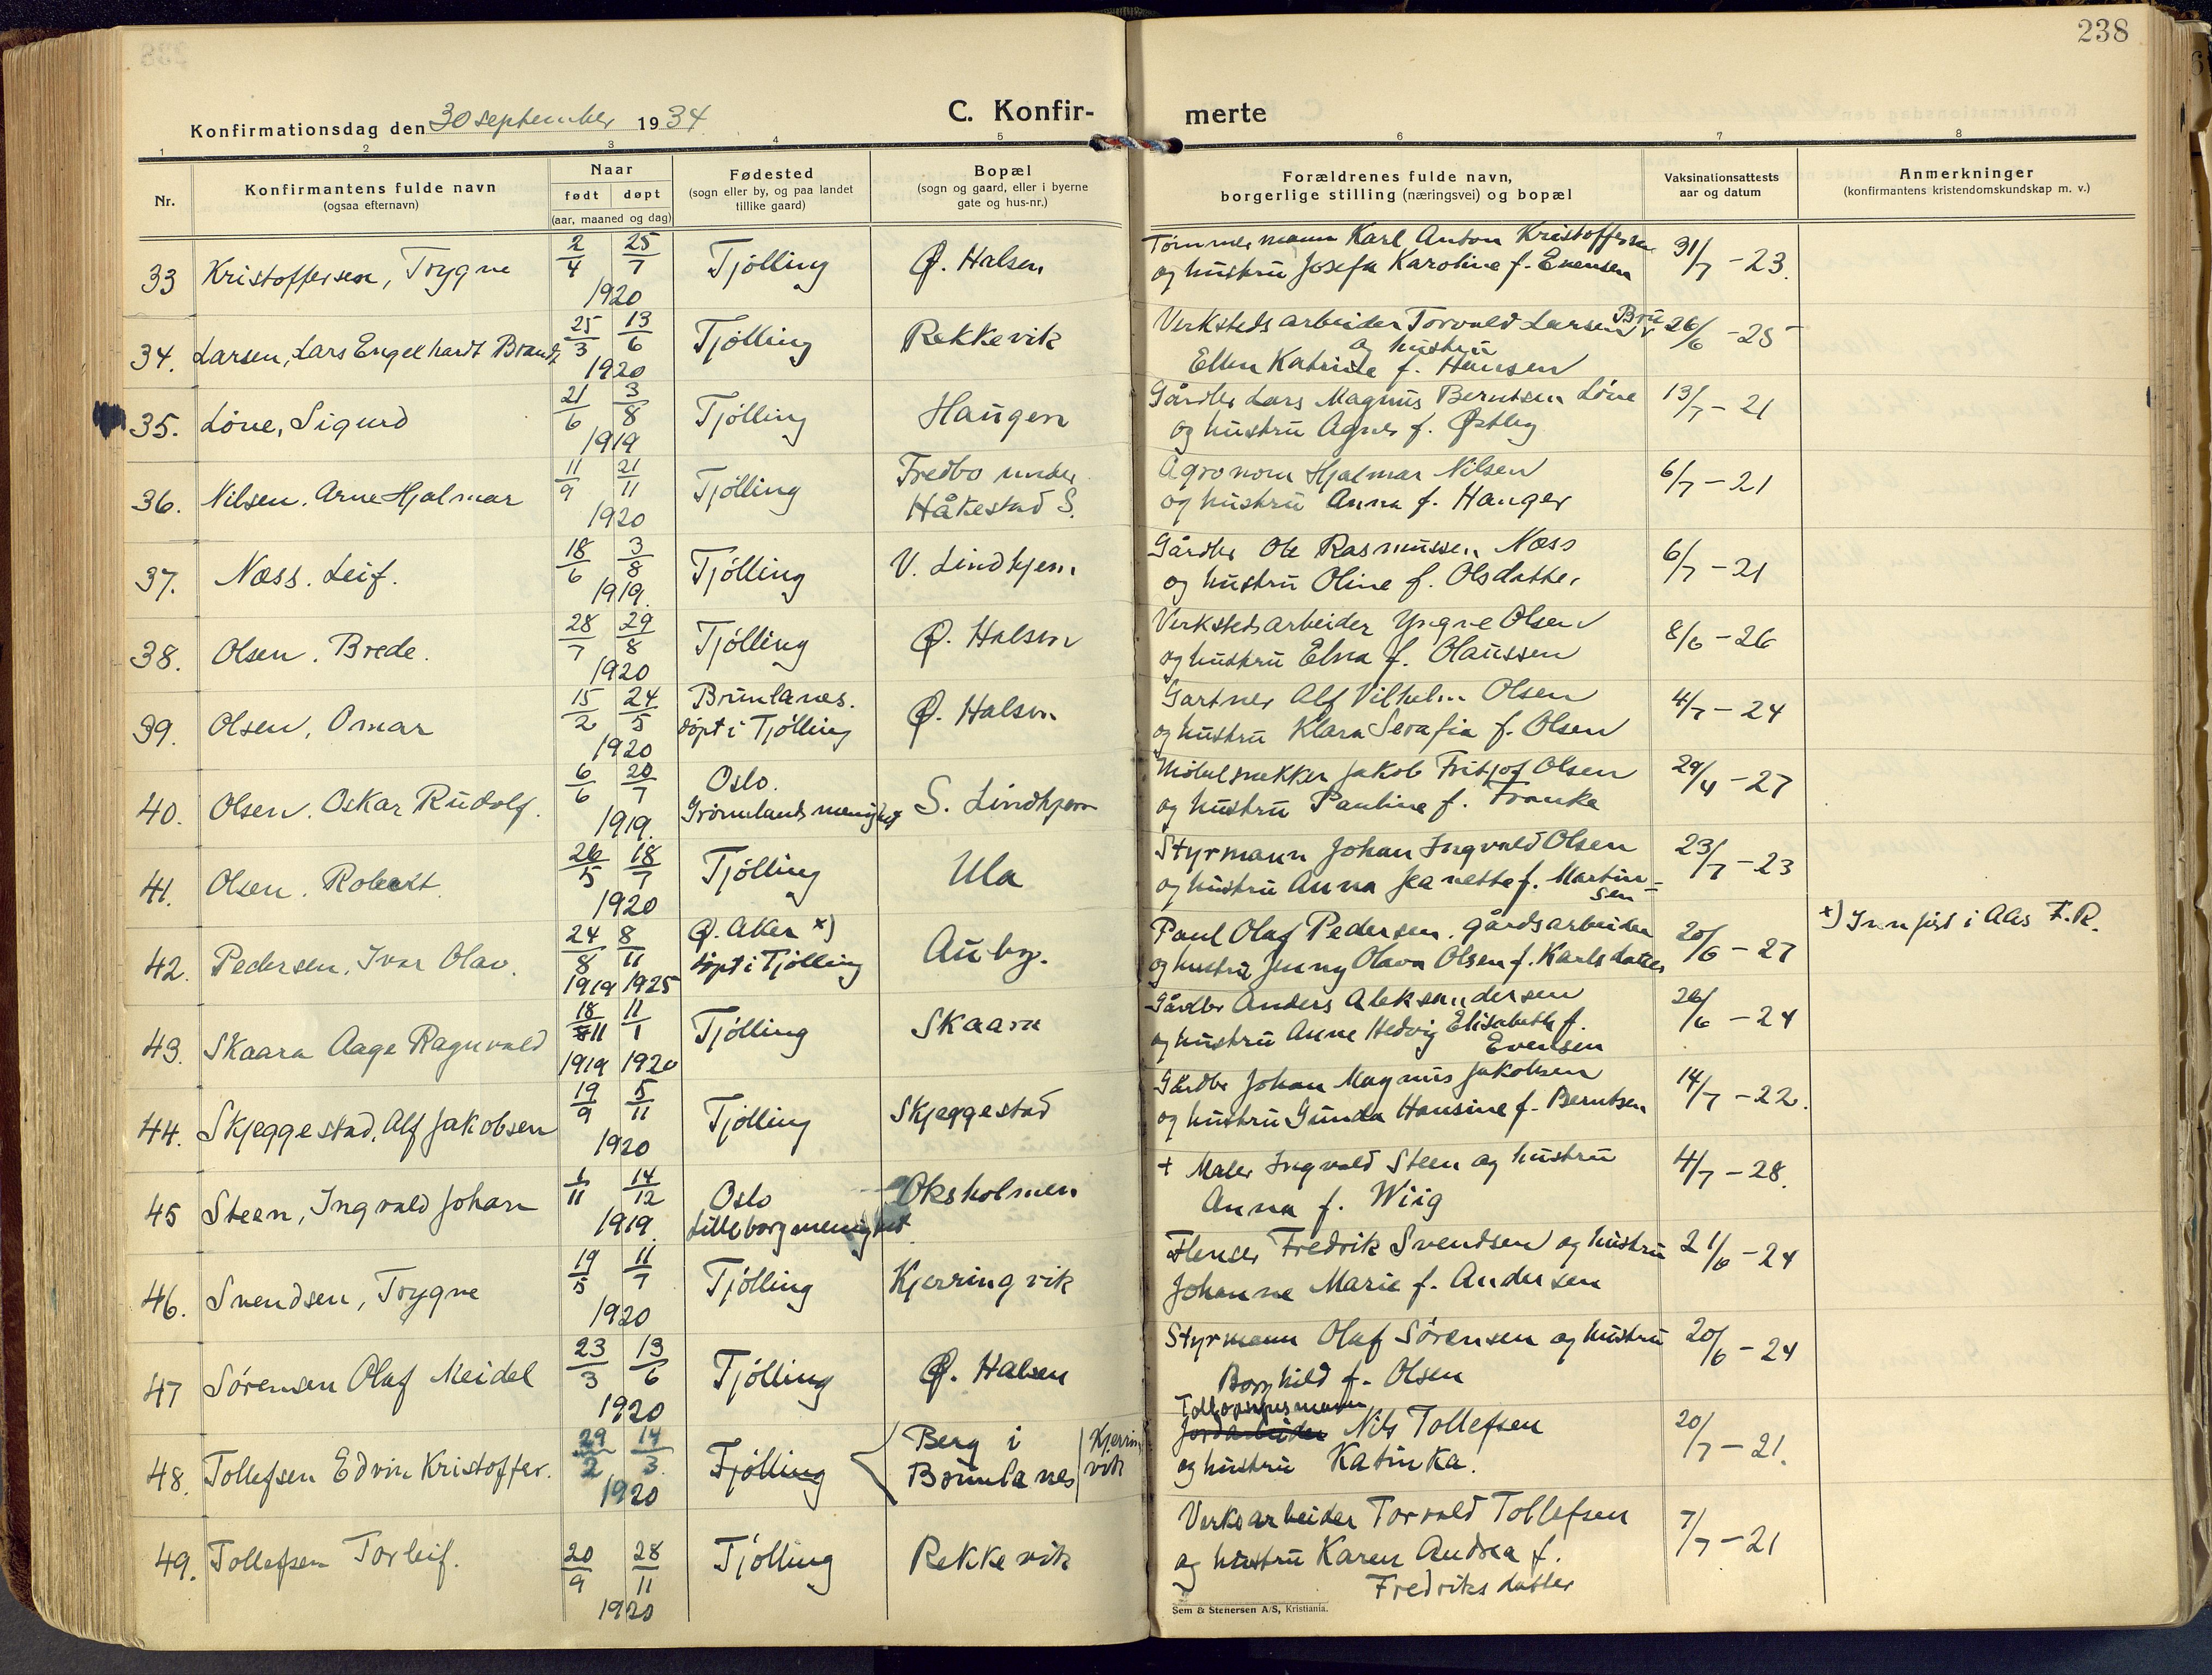 238
Konfirmationsdag den 30 september 1934
C. Konfir-
merte
1 2 3 4 5 6 7 8
Nr.
Konfirmantens fulde navn
(ogsaa efternavn)
Naar
født døpt
(aar, maaned og dag)
Fødested
(sogn eller by, og paa landet
tillike gaard)
Bopæl
(sogn og gaard, eller i byerne
gate og hus-nr.)
Forældrenes fulde navn,
borgerlige stilling (næringsvei) og bopæl
Vaksinationsattests
aar og datum
Anmerkninger
(konfirmantens kristendomskundskap m. v.)
33 Kristoffersen, Trygve 2/4 25/7 1920 Tjølling Ø. Halsen
Tømmermann Karl Anton Kristoffersen
og hustru Josefa Karoline f. Evensen
31/7 - 23.
34. Larsen, Lars Engelhardt Brandt 25/3 13/6 1920 Tjølling Rekkevik
Verkstedsarbeider Torvald Larsen Bru
og hustru
Ellen Katrine f. Hansen
26/6 - 25
35. Løve, Sigurd 21/6 3/8 1919 Tjølling Haugen
Gårdbr Lars Magnus Berntsen Løve
og hustru Agnes f. Østby
13/7 - 21
36. Nilsen. Arne Hjalmar 11/9 21/11 1920 Tjølling Fredbo under
Håkestad S.
Agronom Hjalmar Nilsen
og hustru Anna f. Hanger
6/7 - 21
37. Næss. Leif. 18/6 3/8 1919. Tjølling V. Lindhjem
Gårdbr Ole Rasmussen Næss
og hustru Oline f. Olsdatter
6/7 - 21
38. Olsen. Brede. 28/7 29/8 1920 Tjølling Ø. Halsen
Verkstedsarbeider Yngve Olsen
og hustru Elna f. Olaussen
8/6 - 26
39. Olsen, Omar 15/2 24/5 1920 Brunlanes.
døpt i Tjølling Ø. Halsen
Gartner Alf Vilhelm Olsen
og hustru Klara Serafia f. Olsen
4/7 - 24
40. Olsen. Oskar Rudolf. 6/6 20/7 1919. Oslo.
Grønnlands menighet S. Lindhjem
Møbelsnekker Jakob Fritjof Olsen
og hustru Pauline f. Franke
29/4 - 27
41. Olsen. Robert. 26/5 18/7 1920 Tjølling Ula
Styrmann Johan Ingvald Olsen
og hustru Anna Jeanette f. Martin-
sen
23/7 - 23
42. Pedersen, Ivar Olav. 24/8 8/11 1919 1925 Ø. Aker x)
døpt i Tjølling Auby.
Paul Olaf Pedersen. gårdsarbeider
og hustru Jenny Olava Olsen f. Karlsdatter
20/6 - 27
x) Innført i Aas F.R.
43. Skaara Aage Ragnvald 18/11 11/1 1919 1920 Tjølling Skaara
Gårdbr Anders Aleksandersen
og hustru Anne Hedvig Elisabeth f.
Evensen
26/6 - 24
44. Skjeggestad, Alf Jakobsen 19/9 5/11 1920 Tjølling Skjeggestad
Gårdbr Johan Magnus Jakobsen
og hustru Gunda Hansine f. Berntsen
14/7 - 22.
45 Steen, Ingvald Johan 1/11 14/12 1919. Oslo
Lilleborg menighet Oksholmen
+ Maler Ingvald Steen og hustru
Anna f. Wiig
4/7 - 28.
46. Svendsen, Trygve 19/5 11/7 1920 Tjølling Kjerringvik
Flenser Fredrik Svendsen og hustru
Johanne Marie f. Andersen
21/6 - 24
47 Sørensen Olaf Meidel 23/3 13/6 1920 Tjølling Ø. Halsen
Styrmann Olaf Sørensen og hustru
Borghild f. Olsen
20/6 - 24
48. Tollefsen Edvin Kristoffer. 29/2 14/3. 1920 Tjølling Berg i
Brunlanes Kjerring
vik
Tolloppsynsmann
Jordarbeider Nils Tollefsen
og hustru Katinka.
20/7 - 21.
49. Tollefsen Torleif. 20/9 28/11 1920 Tjølling Rekkevik
Verksarbeider Torvald Tollefsen
og hustru Karen Andrea f.
Fredriksdatter
7/7 - 21
Sem & Stenersen A/S, Kristiania.